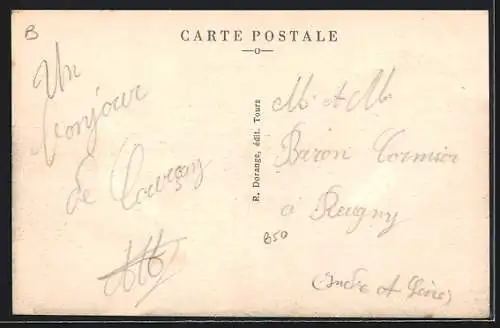 B
CARTE POSTALE
Un
bonjour
de
R. Dorange, édit. Tours
Mr et Mme
Baron Cormier
à Reugny
850
(Indre et Loire)